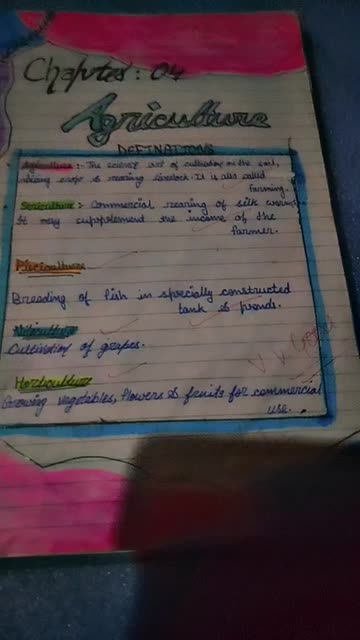 Chapter: 04
Agriculture
DEFINATIONS
Agriculture :- The science & art of cultivation on the soil,
raising crops & rearing livestock. It is also called
farming.
Sericulture :- Commercial rearing of silk worms.
It may suppplement the income of the
farmer.
Pisciculture
Breeding of fish in specially constructed
tank & ponds.
Viticulture
Cultivation of grapes.
V. V Good
Horticulture
Growing vegetables, flowers & fruits for commercial
use.